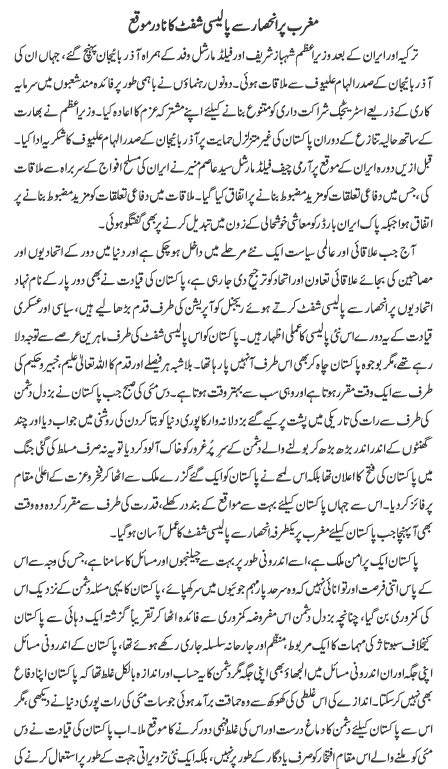 مغرب پر انحصار سے پالیسی شفٹ کا نادر موقع
ترکیہ اور ایران کے بعد وزیر اعظم شہباز شریف اور فیلڈ مارشل وفد کے ہمراہ آذر بائیجان پہنچ گئے، جہاں ان کی
آذر بائیجان کے صدر الہام علیوف سے ملاقات ہوئی۔ دونوں رہنماؤں نے باہمی طور پر فائدہ مند شعبوں میں سرمایہ
کاری کے ذریعے اسٹریٹجک شراکت داری کو متنوع بنانے کیلئے اپنے مشترکہ عزم کا اعادہ کیا۔ وزیر اعظم نے بھارت
کے ساتھ حالیہ تنازع کے دوران پاکستان کی غیر متزلزل حمایت پر آذر بائیجان کے صدر الہام علیوف کا شکریہ ادا کیا۔
قبل ازیں دورہ ایران کے موقع پر آرمی چیف فیلڈ مارشل سید عاصم منیر نے ایران کی مسلح افواج کے سربراہ سے ملاقات
کی، جس میں دفاعی تعلقات کو مزید مضبوط بنانے پر اتفاق کیا گیا۔ ملاقات میں دفاعی تعلقات کو مزید مضبوط بنانے پر
اتفاق ہوا جبکہ پاک ایران بارڈر کو معاشی خوشحالی کے زون میں تبدیل کرنے پر بھی گفتگو ہوئی۔
آج جب علاقائی اور عالمی سیاست ایک نئے مرحلے میں داخل ہو چکی ہے اور دنیا میں دور کے اتحادیوں اور
مصاحبین کی بجائے علاقائی تعاون اور اتحاد کو ترجیح دی جارہی ہے، پاکستان کی قیادت نے بھی دور پار کے نام نہاد
اتحادیوں پر انحصار سے پالیسی شفٹ کرتے ہوئے ریجنل کو آپریشن کی طرف قدم بڑھا لیے ہیں، سیاسی اور عسکری
قیادت کے یہ دورے اس نئی پالیسی کا عملی اظہار ہیں۔ پاکستان کو اس پالیسی شفٹ کی طرف ماہرین عرصے سے توجہ دلا
رہے تھے، مگر بوجوہ پاکستان چاہ کر بھی اس طرف آ نہیں پا رہا تھا۔ بلاشبہ ہر فیصلے اور قدم کا اللہ تعالیٰ علیم، خبیر و حکیم کی
طرف سے ایک وقت مقرر ہوتا ہے اور وہی سب سے بہتر وقت ہوتا ہے۔ دس مئی کی صبح جب پاکستان نے بزدل دشمن
کی طرف سے رات کی تاریکی میں پشت پر کیے گئے بزدلانہ وار کا پوری دنیا کو بتا کر دن کی روشنی میں جواب دیا اور چند
گھنٹوں کے اندر اندر بڑھ بڑھ کر بولنے والے دشمن کے سر پرغرور کو خاک آلود کر دیا تو یہ نہ صرف مسلط کی گئی جنگ
میں پاکستان کی فتح کا اعلان تھا بلکہ اس لمحے نے پاکستان کو ایک گئے گزرے ملک سے اٹھا کر فخر و عزت کے اعلیٰ مقام
پر فائز کر دیا۔ اس سے جہاں پاکستان کیلئے بہت سے مواقع کے بند در کھلے، قدرت کی طرف سے مقرر کردہ وہ وقت
بھی آپہنچا جب پاکستان کیلئے مغرب پر یکطرفہ انحصار سے پالیسی شفٹ کا عمل آسان ہو گیا۔
پاکستان ایک پرامن ملک ہے، اسے اندرونی طور پر بہت سے چیلنجوں اور مسائل کا سامنا ہے، جس کی وجہ سے اس
کے پاس اتنی فرصت اور توانائی نہیں کہ وہ سرحد پار مہم جوئیوں میں سر کھپائے، پاکستان کا یہی مسئلہ دشمن کے نزدیک اس
کی کمزوری بن گیا، چنانچہ بزدل دشمن اس مفروضہ کمزوری سے فائدہ اٹھا کر تقریباً گزشتہ ایک دہائی سے پاکستان
کیخلاف سبوتاژ کی مہمات کا ایک مربوط، منظم اور جارحانہ سلسلہ جاری رکھے ہوئے تھا، پاکستان کے اندرونی مسائل
اپنی جگہ اور ان اندرونی مسائل میں الجھاؤ بھی اپنی جگہ مگر دشمن کا یہ حساب اور اندازہ بالکل غلط تھا کہ پاکستان اپنا دفاع
بھی نہیں کر سکتا۔ اندازے کی اس غلطی کی کوکھ سے وہ حماقت برآمد ہوئی جو سات مئی کی رات پوری دنیا نے دیکھی، مگر
اس سے پاکستان کیلئے دشمن کا دماغ درست اور اس کی غلط فہمی دور کرنے کا موقع ملا۔ اب پاکستان کی قیادت نے دس
مئی کو ملنے والے اس مقام افتخار کو صرف یادگار کے طور پر نہیں، بلکہ ایک نئی تزویراتی جہت کے طور پر استعمال کرنے کی